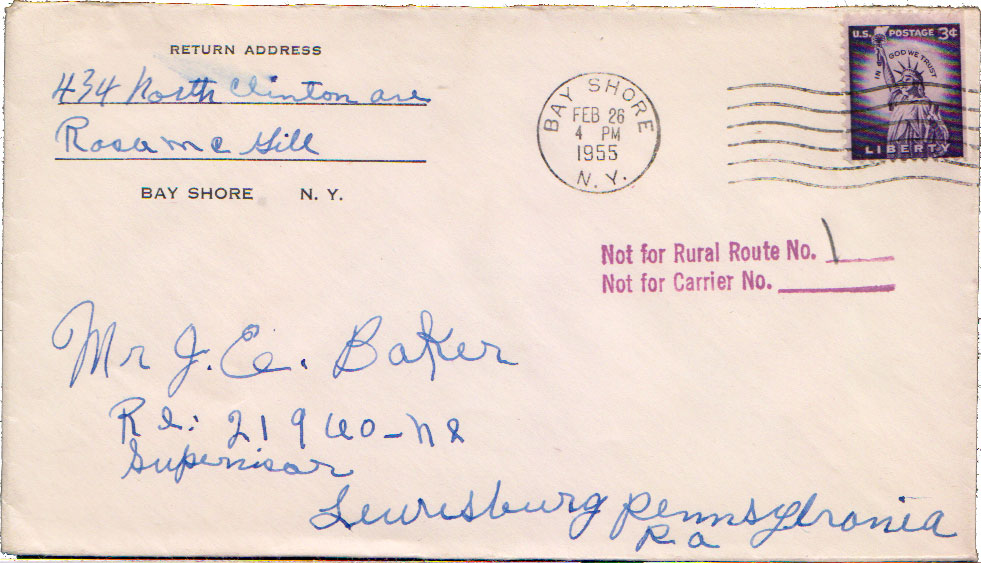 RETURN ADDRESS
434 North Clinton ave
Rosa mc Gill
BAY SHORE N. Y.
BAY SHORE
FEB 26
4 PM
1955
N. Y.
U.S. POSTAGE 3¢
IN GOD WE TRUST
LIBERTY
Not for Rural Route No. 1
Not for Carrier No.
Mr J. E. Baker
Re: 21960-NE
Supervisor
Lewisburg Pennsylvania
Pa